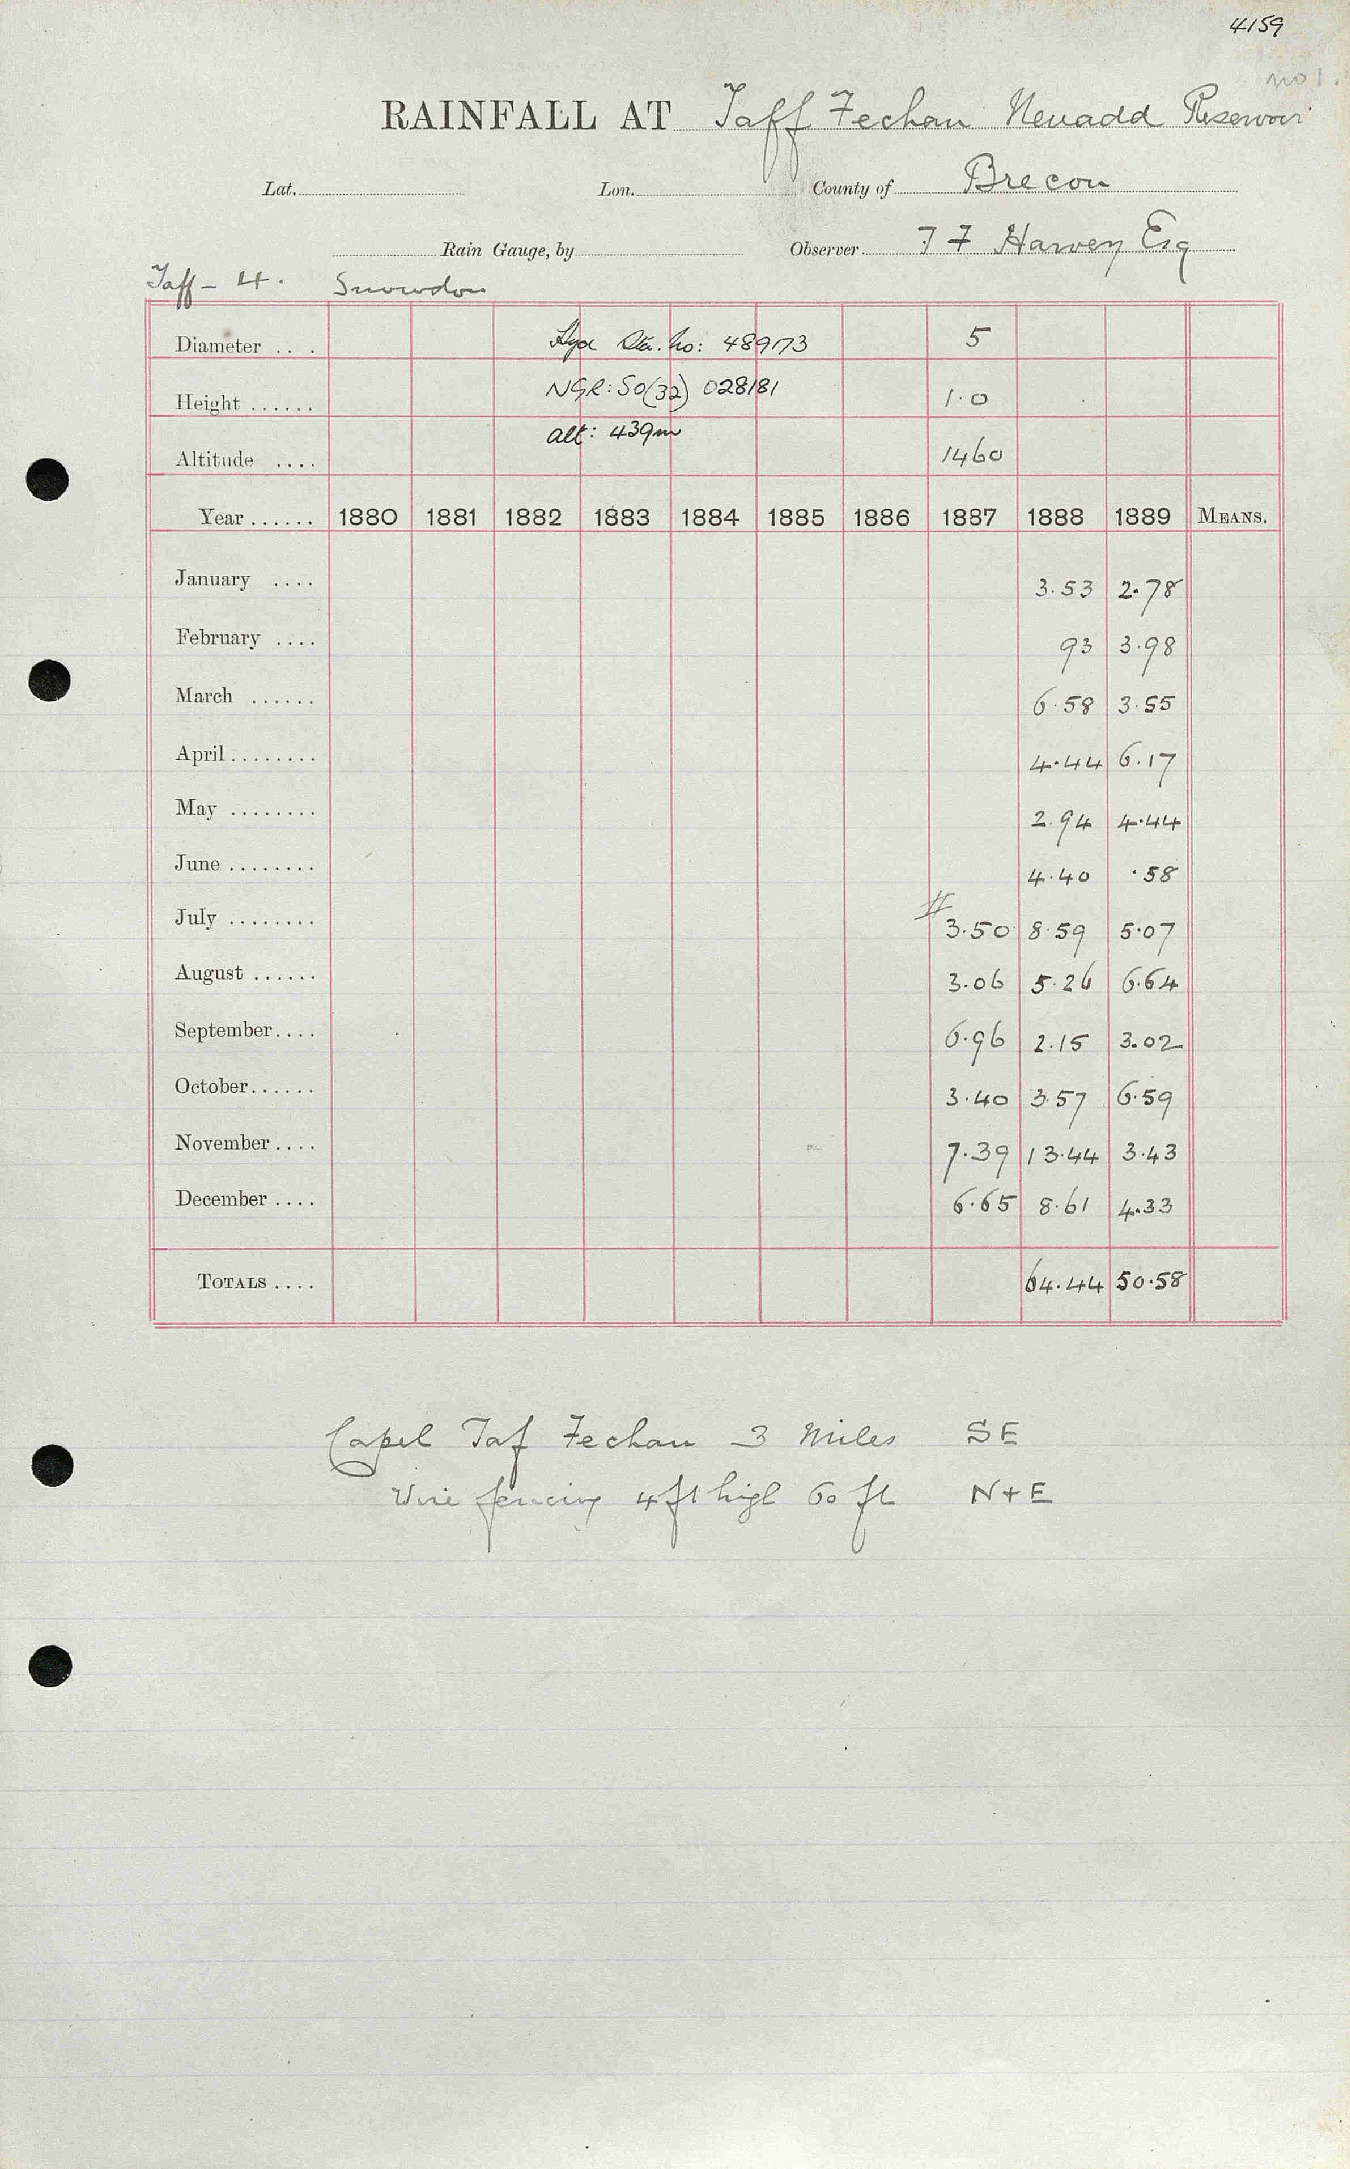 4159
no 1.
RAINFALL AT Taff Fechan Neuadd Reservoir
Lat. Lon. County of Brecon
Rain Gauge, by Observer T F Harvey Esq
Taff - 4. Snowdon
Diameter .. . Hyd Sta. no: 489173 5
Height ...... NGR: SO(32) 028181 1.0
alt: 439m
Altitude .... 1460
Year ...... 1880 1881 1882 1883 1884 1885 1886 1887 1888 1889 MEANS.
January .... 3.53 2.78
February .... 93 3.98
March ...... 6.58 3.55
April ........ 4.44 6.17
May ........ 2.94 4.44
June ........ 4.40 .58
July ........ 3.50 8.59 5.07
August ...... 3.06 5.26 6.64
September .... 6.96 2.15 3.02
October ...... 3.40 3.57 6.59
November .... 7.39 13.44 3.43
December .... 6.65 8.61 4.33
TOTALS .... 64.44 50.58
Capel Taf Fechan 3 Miles SE
Wire fencing 4 ft high 60 ft N + E